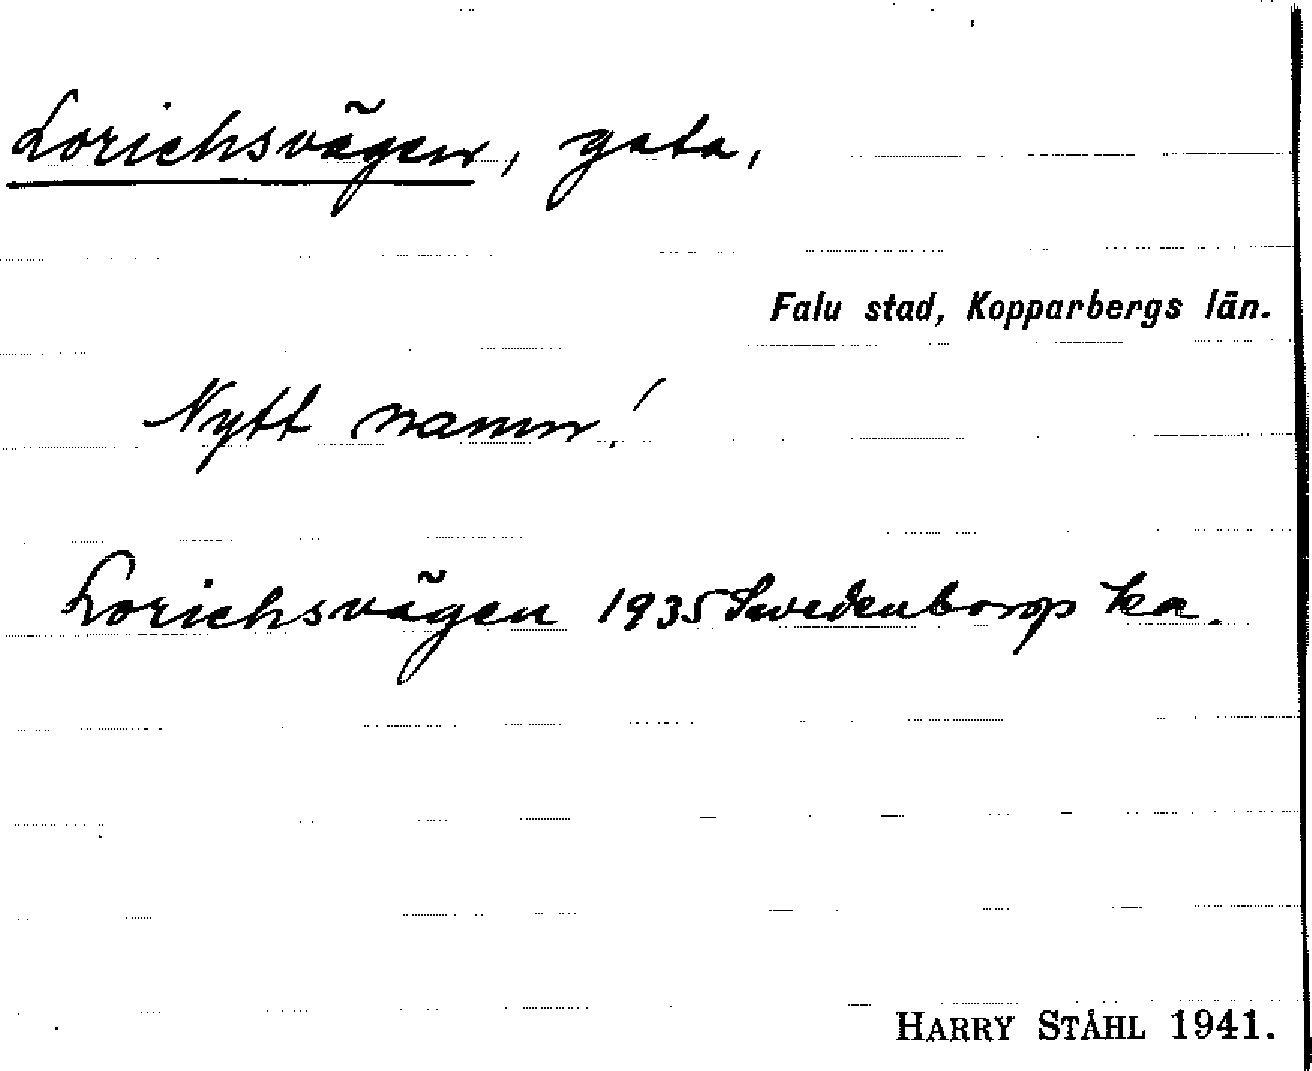 Lorichsvägen, gata,
Falu stad, Kopparbergs län.
Nytt namn!
Lorichsvägen 1935 Swedenborgs ka.
HARRY STÅHL 1941.